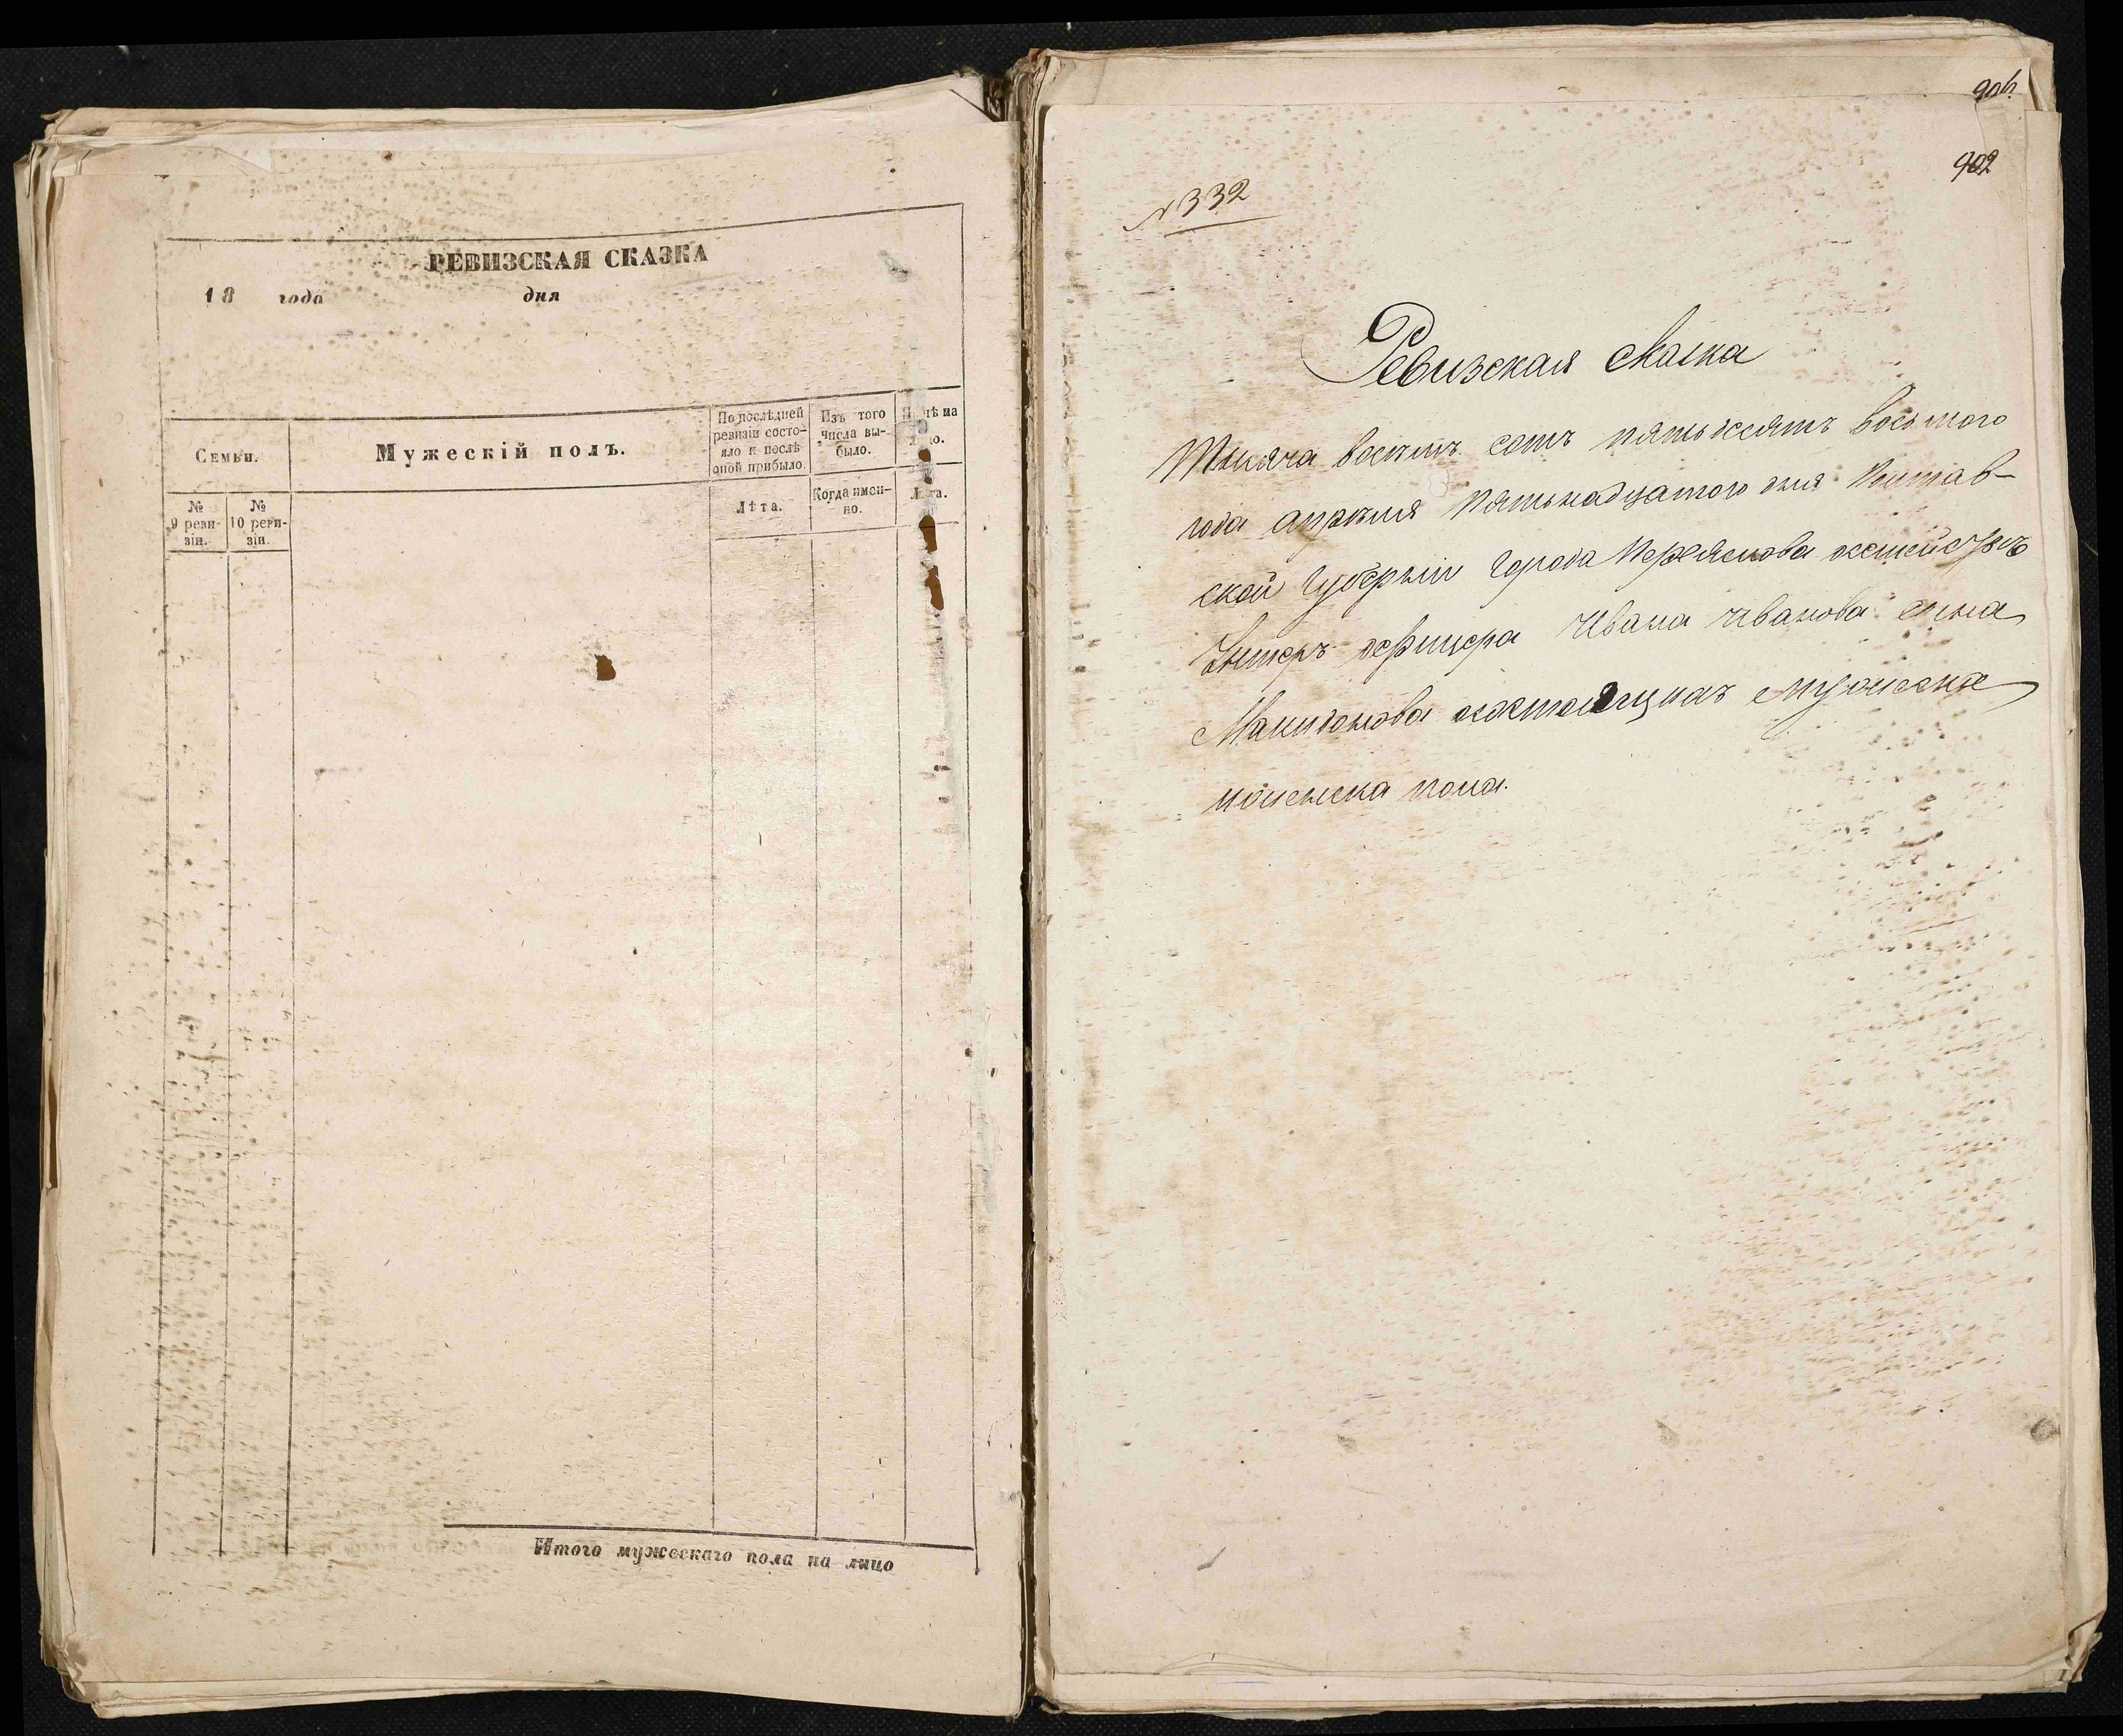 РЕВИЗСКАЯ СКАЗКА
18 года дня
Семьи.
Мужескій полъ.
По послѣдней ревизіи состояло и послѣ оной прибыло.
Изъ того числа выбыло.
№ 9 ревизіи.
№ 10 ревизіи.
Лѣта.
Когда именно.
Лѣта.
Итого мужескаго пола на лицо
906.
902
№ 332
Ревизская сказка
Тысяча восемъ сотъ пятьдесятъ восьмого
года апрѣля пятьнадцатого дня Полтав-
ской Губерніи города Переяслова
Унтеръ офицера Ивана Иванова сына
Макидонова состоящихъ мужеска
и женска пола.